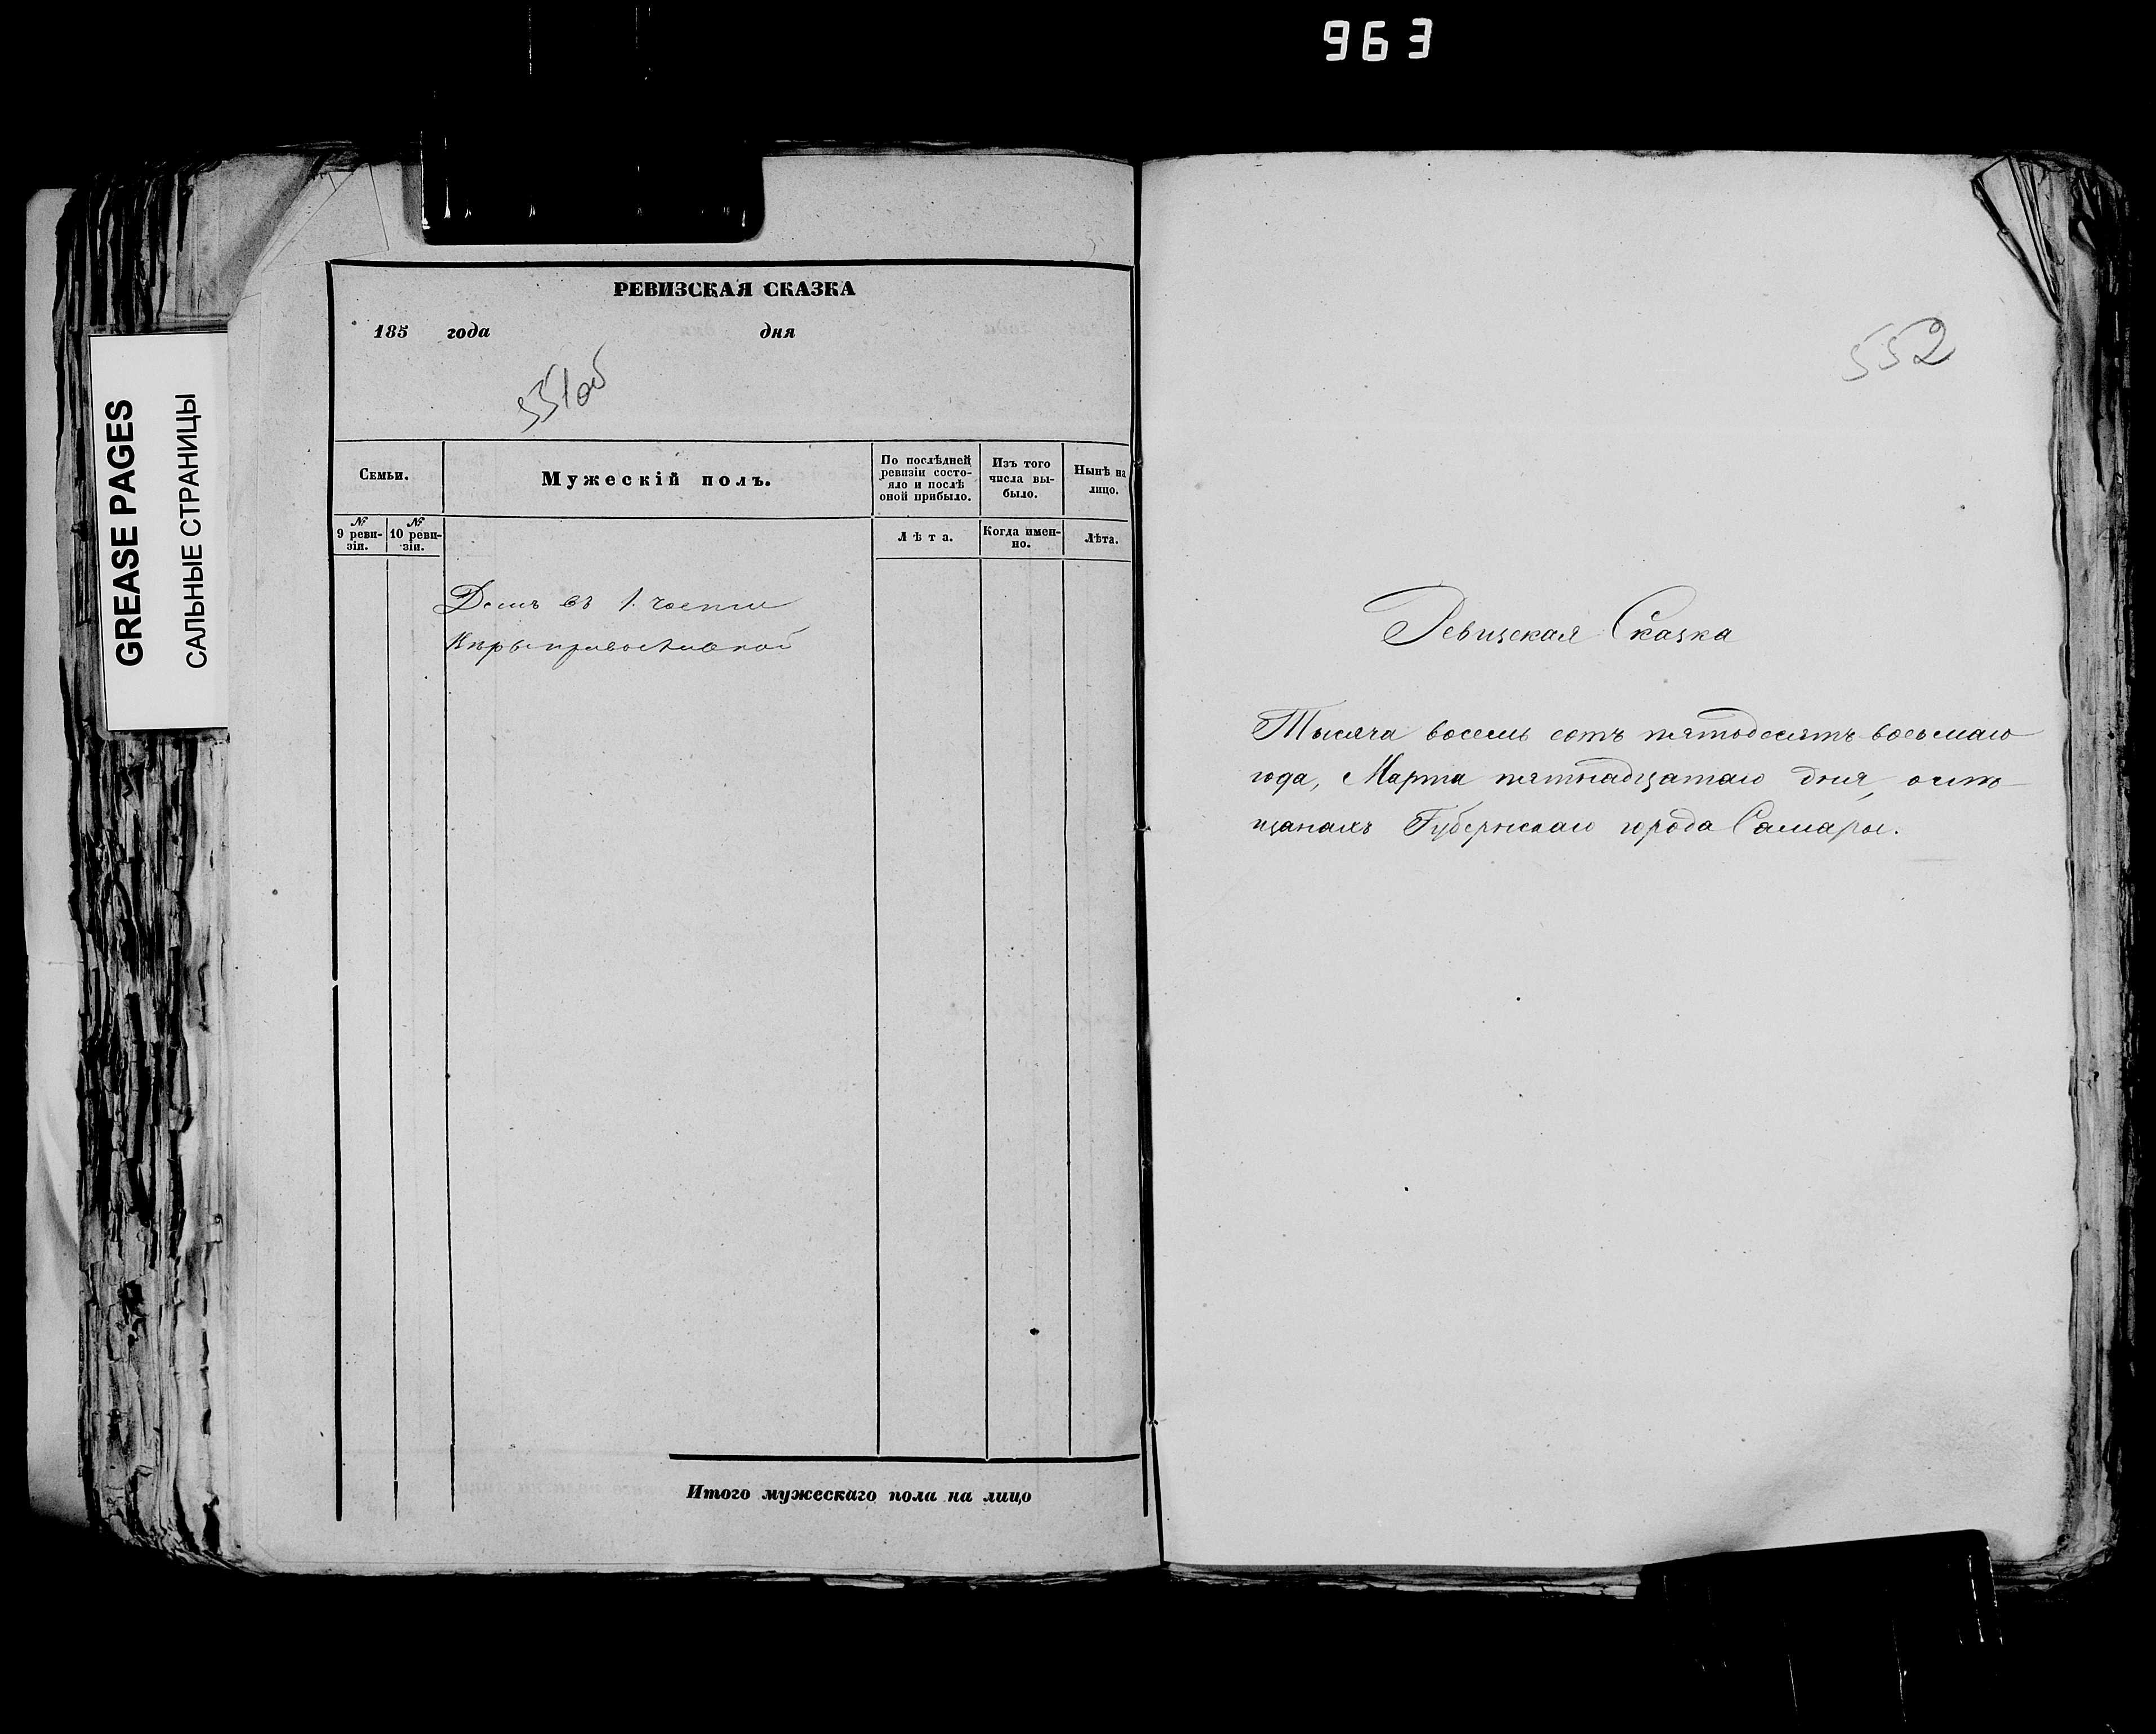 963
GREASE PAGES
САЛЬНЫЕ СТРАНИЦЫ
РЕВИЗСКАЯ СКАЗКА
185 года дня
551об
Семьи.
Мужескій полъ.
По послѣдней ревизіи состо-
яло и послѣ оной прибыло.
Изъ того числа вы-
было.
Нынѣ на лицо.
№ 9 реви-
зіи.
№ 10 реви-
зіи.
Лѣта.
Когда имен-
но.
Лѣта.
Домъ въ 1. части
Итого мужескаго пола на лицо
552
Ревизская Сказка
Тысяча восемь сотъ пятодесятъ восьмаго
года, Марта пятнадцатаго дня, омѣ-
щанахъ Губернскаго города Самары.